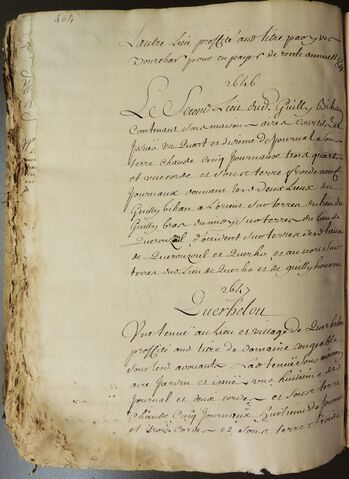 404
Lautre lieu proffité aux titre par yves
Sourebar pour en payer de rente annuelle
2646
Le Second Lieu dud. Guilly Bihan
Contenant Sous maison aires Courtil et
Jardin un Quart et dixieme de Journal Sous
terre chaude Cinq Journaux trois quarts
et une corde et Sous terre froide neuf
Journaux donnant lesd. deux Lieux du
Guilly bihan a Lorient Sur terres du lieu du
Guilly bras du midy Sur terres du lieu de
d'occident Sur terres des lieux
de et Querho et au nord Sur
terres du Lieu de Querho et de guillyhouarn
2647
Querhelou
Une tenue au lieu et village de Querhelou
proffité aux titre de domaine congeable
Sous led. avouants Lad. tenue Sous maison
aire Jardin et issues une huitieme de
Journal et deux cordes et Sous terre
chaude Cinq Journaux huitieme de Journal
et trois Cordes et Sous terre froide